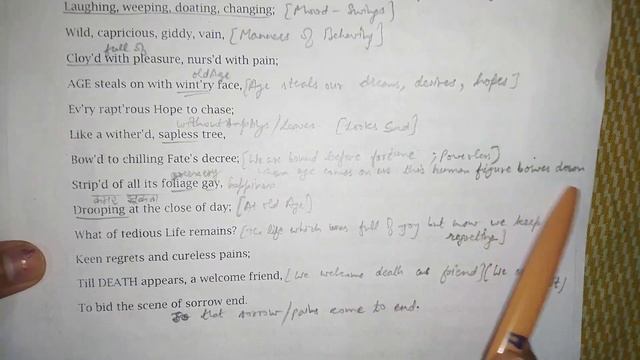 Laughing, weeping, doating, changing; [Mood - Swings]
Wild, capricious, giddy, vain, [Manners of Behaviour]
full of
Cloy'd with pleasure, nurs'd with pain;
old Age
AGE steals on with wint'ry face, [Age steals our dreams, desires, hopes]
Ev'ry rapt'rous Hope to chase;
without /Leaves [Looks Sad]
Like a wither'd, sapless tree,
Bow'd to chilling Fate's decree; [We are bound before fortune ; Powerless]
greenery age comes on us this human figure bowes down
Strip'd of all its foliage gay, happiness
Drooping at the close of day; [At old Age]
What of tedious Life remains? [the life which was full of joy but now we keep
regretting]
Keen regrets and cureless pains;
Till DEATH appears, a welcome friend, [We welcome death as friend] [We
To bid the scene of sorrow end.
that sorrow/pains come to end.